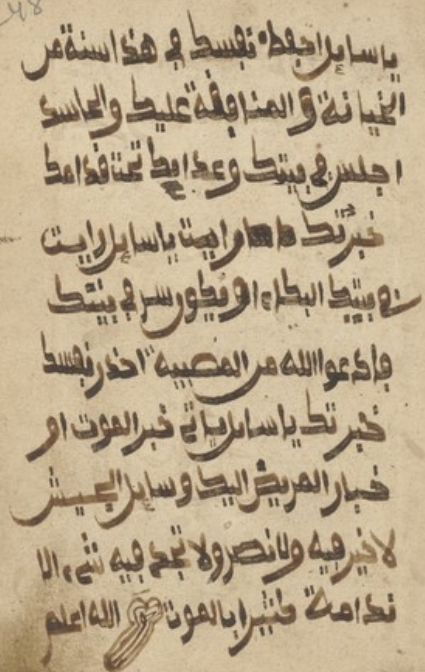 يا سايل احفظ نفسك في هذا سنة من
الخيانة والمنافقة عليك والحاسد
اجلس في بيتك وعدايك تحت قدامك
خبرتك ما رايت يا سايل رايت
في بيتك البكاء او يكون سر في بيتك
فادعوا الله من المصيبة احذر نفسك
خبرتك يا سايل ياتي خبر الموت او
خبار المريض اليك وسايل الجيش
لا خير فيه ولا نصر ولا تجد فيه شيء الا
ندامة كثيرا بالموت والله اعلم